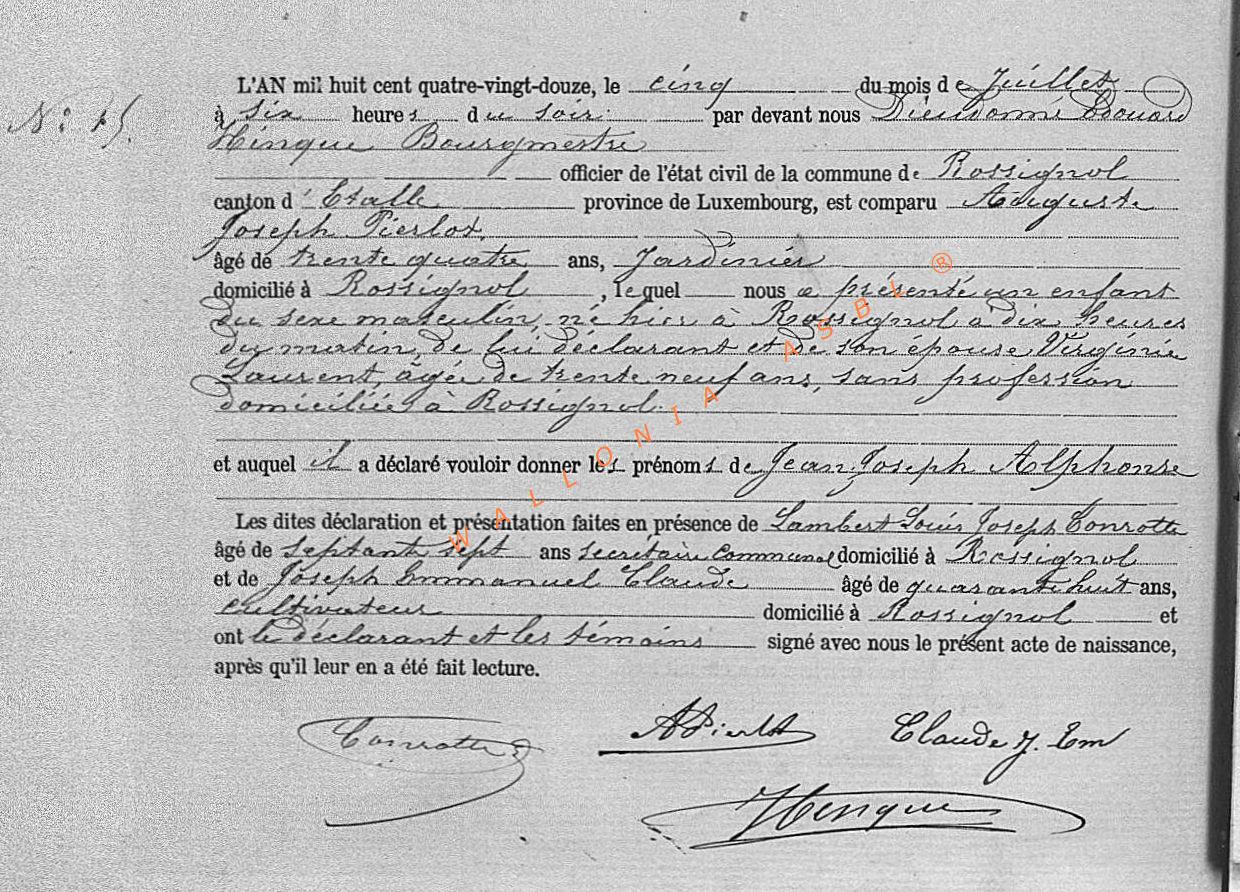 L'AN mil huit cent quatre-vingt-douze, le cinq du mois de Juillet
N° 15.
à six heures du soir par devant nous Dieudonné Edouard
Hinque Bourgmestre
officier de l'état civil de la commune de Rossignol
canton d'Etalle province de Luxembourg, est comparu Auguste
Joseph Pierlot,
âgé de trente quatre ans, Jardinier
domicilié à Rossignol, lequel nous a présenté un enfant
du sexe masculin, né hier à Rossignol à dix heures
du matin, de lui déclarant et de son épouse Virginie
Laurent, âgée de trente neuf ans, sans profession
domiciliée à Rossignol.
et auquel il a déclaré vouloir donner les prénoms de Jean Joseph Alphonse
Les dites déclaration et présentation faites en présence de Lambert Louis Joseph Conrotte
âgé de septante sept ans secrétaire communal domicilié à Rossignol
et de Joseph Emmanuel Claude âgé de quarante huit ans,
cultivateur domicilié à Rossignol et
ont le déclarant et les témoins signé avec nous le présent acte de naissance,
après qu'il leur en a été fait lecture.
Conrotte A Pierlot Claude J. Em
Hinque
WALLONIA ASBL ®